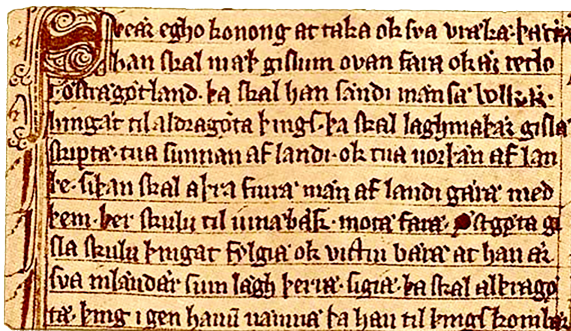 Svear egho konong at taka ok sva vrækæ
han skal mæþ gislum ovan fara ok æt
östragötland. þa skal han sændi mæn
hingat til aldragöta þings. þa skal laghmaþær gislæ
skiptæ. tua sunnan af landi. ok tua norþæn af lan
þe. siþan skal aþra fiura mæn af landi gæræ meþ
þem. þer skulu til iunabæk. motæ faræ. östgöta gi
sla skulu þingat fylgia ok vittni bæra at han ær
sva inlændær sum lagh þerræ. sigiæ. þa skal aldrago
tæ. þing i gen hanum næmnæ þa han til þings kombær